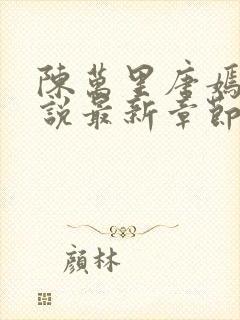 陳萬里唐嫣
說最新章節
顏林